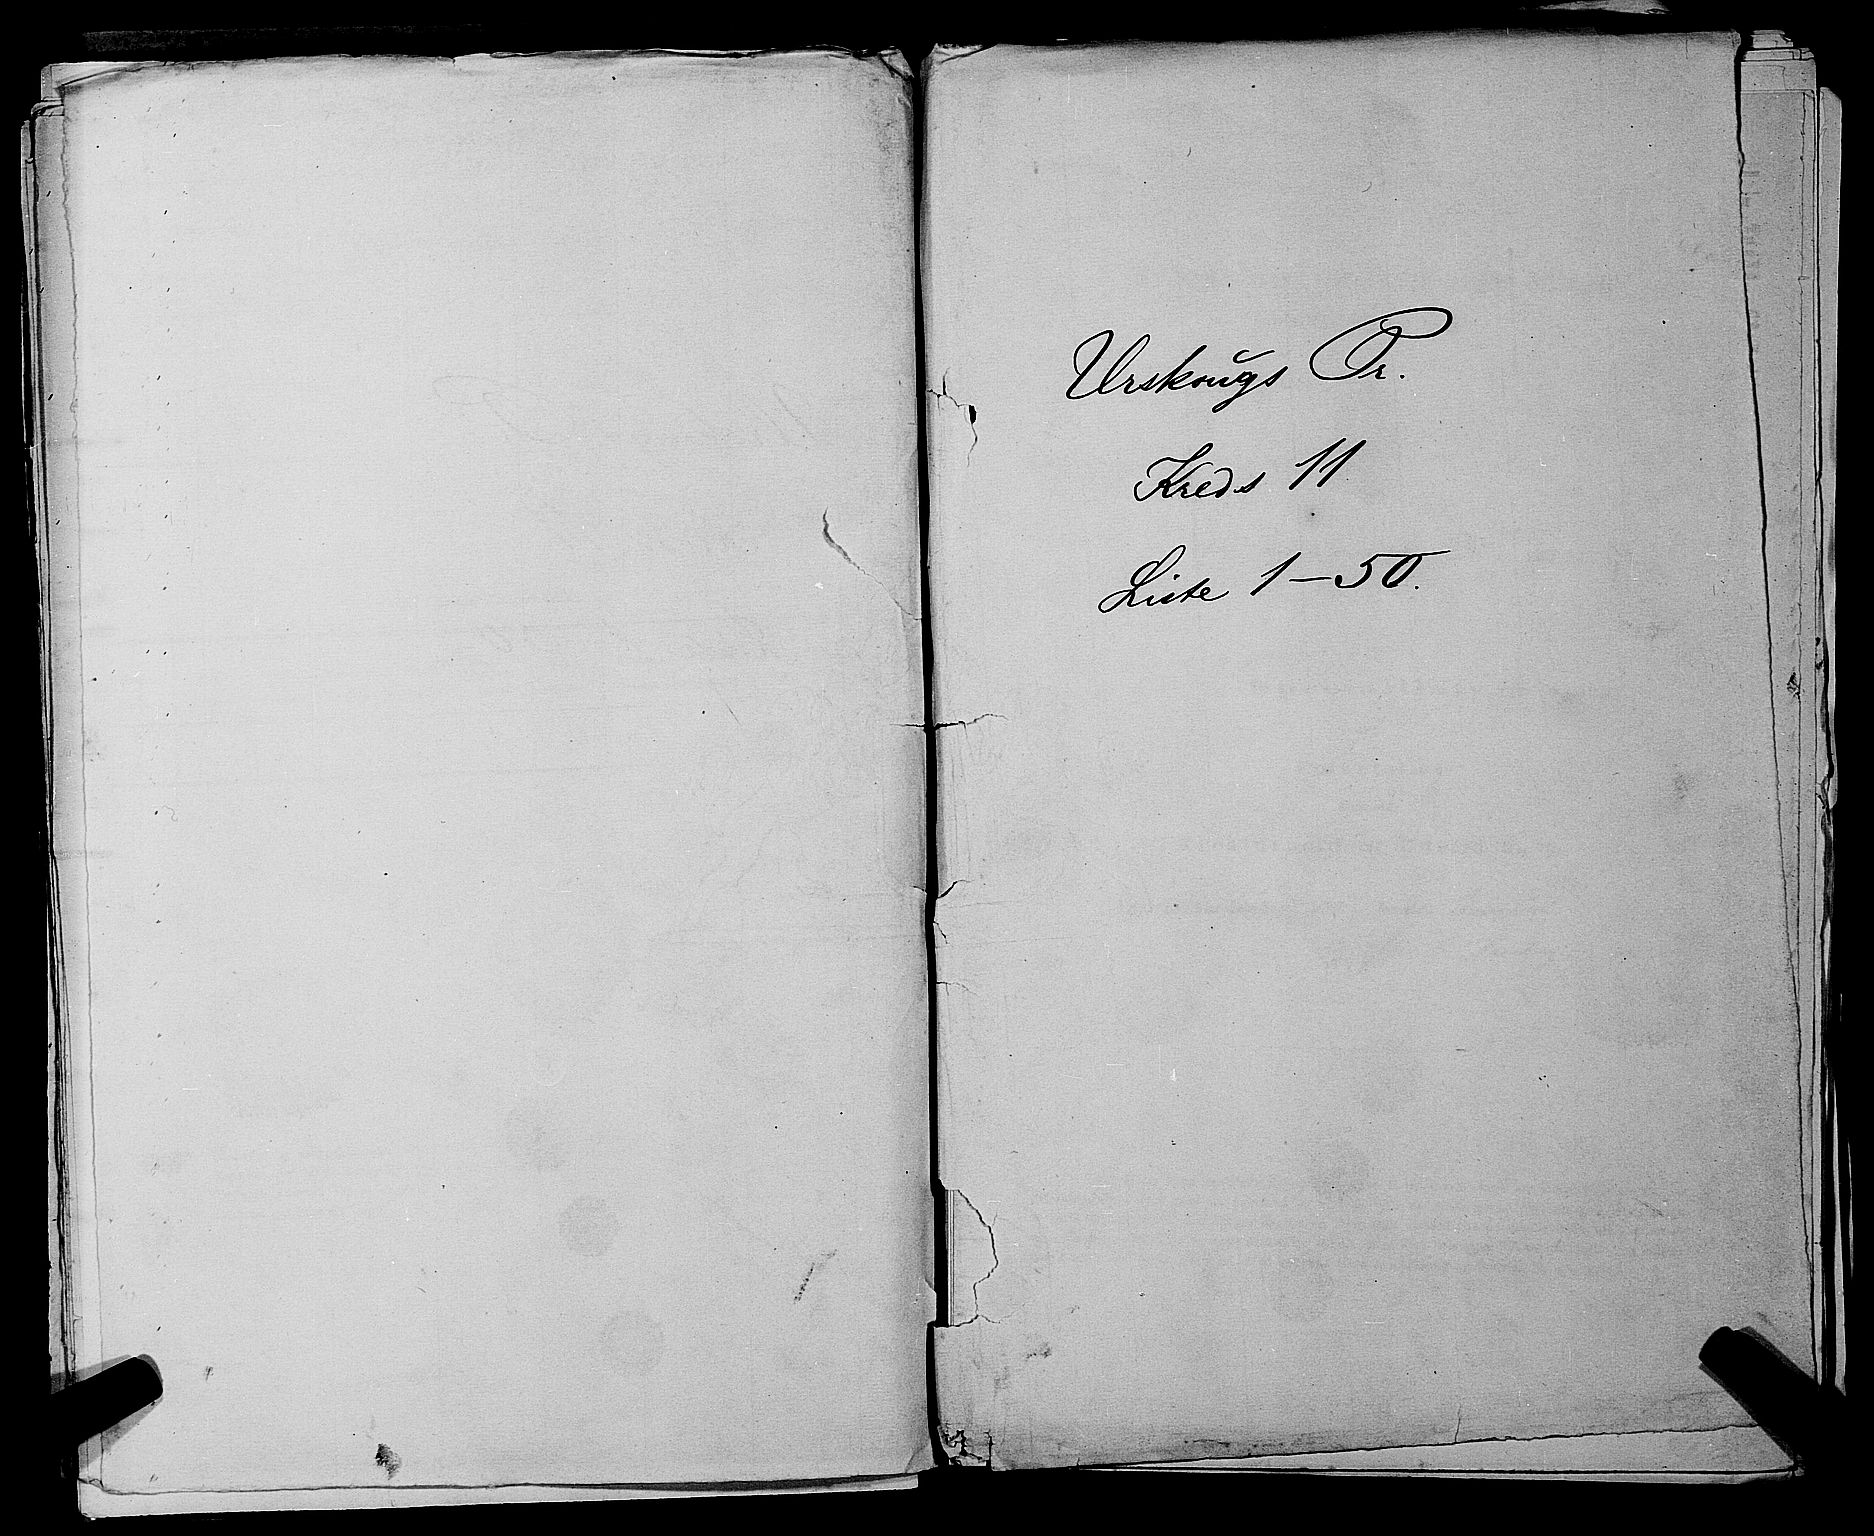 Urskougs Pr.
Kreds 11
Liste 1-50.